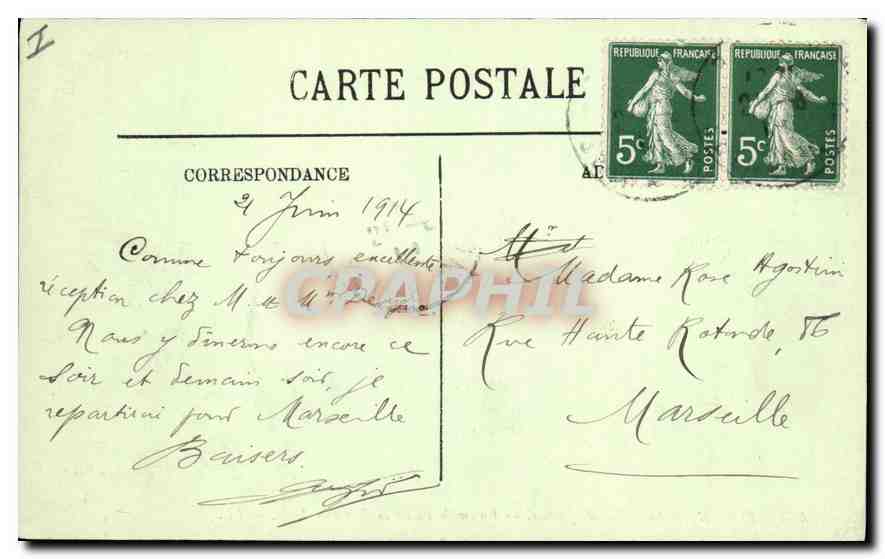 I
CARTE POSTALE
REPUBLIQUE FRANÇAISE
5c
POSTES
REPUBLIQUE FRANÇAISE
5c
POSTES
CORRESPONDANCE
AD
21 Juin 1914
Comme toujours excellente
réception chez M. et Mme
Nous y dinerons encore ce
soir et demain soir, je
repartirai pour Marseille
Baisers
CPAPHIL
Mr et
Madame Rose Agostini
Rue Haute Rotonde, 86
Marseille